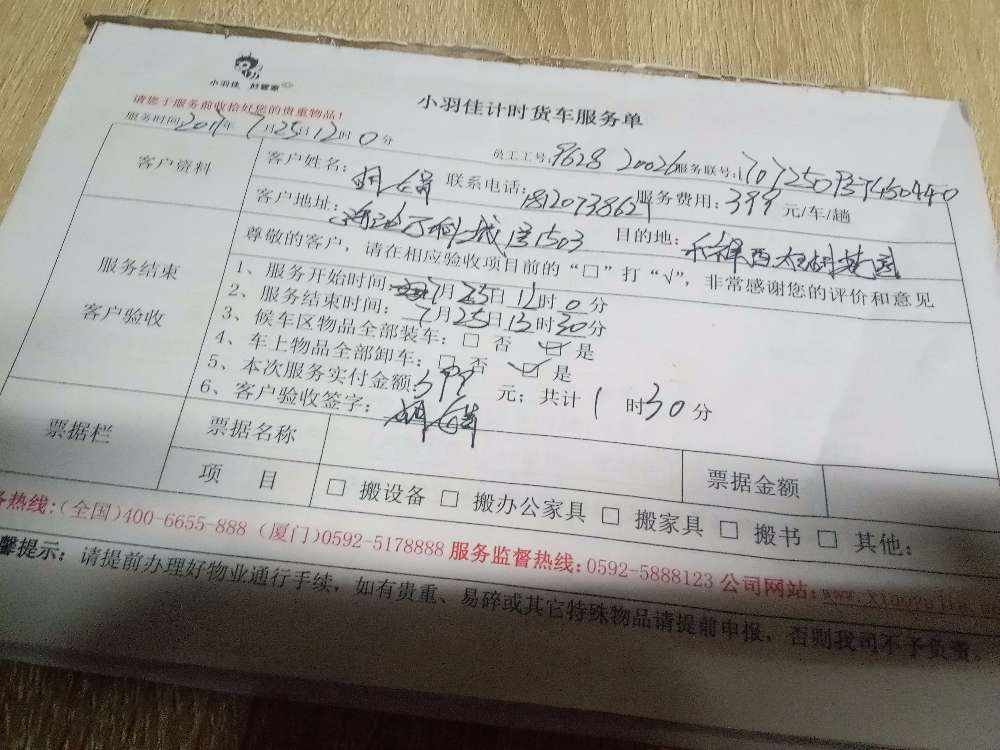 小羽佳 好管家
小羽佳计时货车服务单
请您于服务前收拾好您的贵重物品!
服务时间:2017年7月25日12时0分 员工工号:9628 20026 服务联号:
客户资料
客户姓名: 联系电话:1812073862 服务费用:399元/车/趟
客户地址: 万科城 1503 目的地:
服务结束
客户验收
尊敬的客户,请在相应验收项目前的“□”打“√”,非常感谢您的评价和意见
1、服务开始时间:7月25日12时0分
2、服务结束时间:7月25日13时30分
3、候车区物品全部装车:□ 否 ☑ 是
4、车上物品全部卸车:□ 否 ☑ 是
5、本次服务实付金额:399元;共计1时30分
6、客户验收签字:
票据栏 票据名称 票据金额
项 目 □ 搬设备 □ 搬办公家具 □ 搬家具 □ 搬书 □ 其他:
务热线:(全国)400-6655-888 (厦门)0592-5178888 服务监督热线:0592-5888123 公司网站:www.xiaoyujia
馨提示:请提前办理好物业通行手续,如有贵重、易碎或其它特殊物品请提前申报,否则我司不予负责。